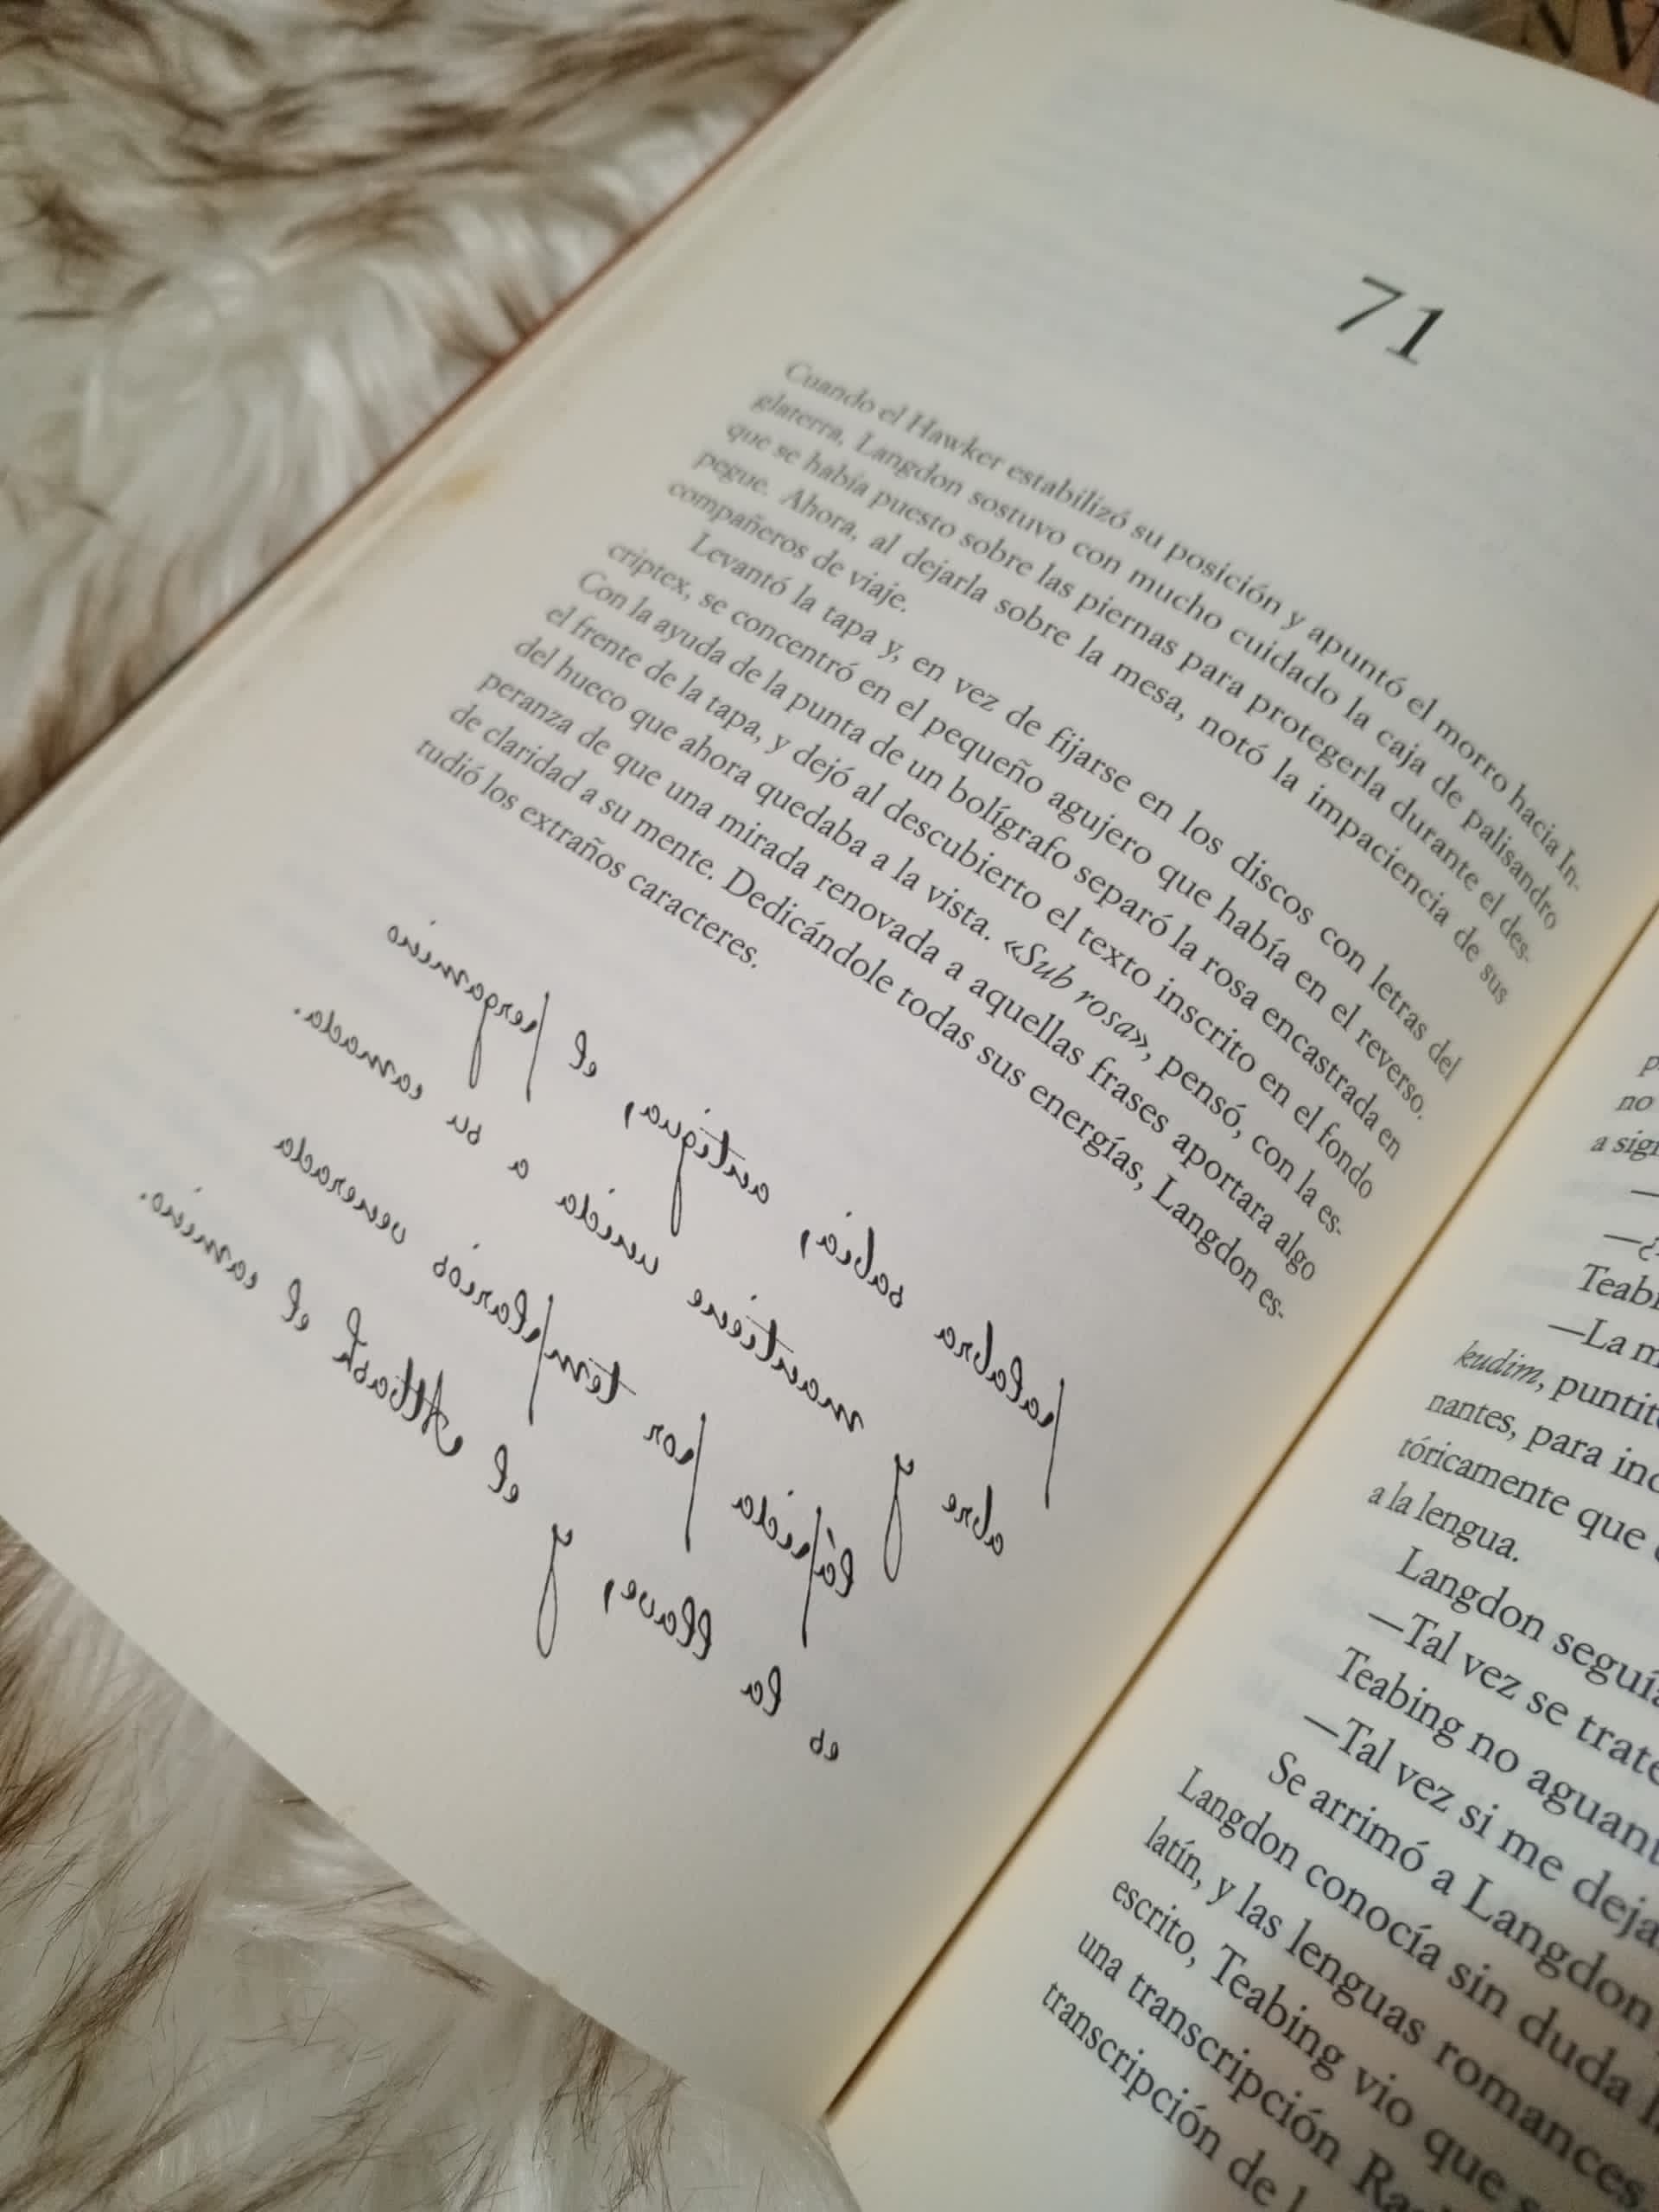 71
Cuando el Hawker estabilizó su posición y apuntó el morro hacia In-
glaterra, Langdon sostuvo con mucho cuidado la caja de palisandro
que se había puesto sobre las piernas para protegerla durante el des-
pegue. Ahora, al dejarla sobre la mesa, notó la impaciencia de sus
compañeros de viaje.
Levantó la tapa y, en vez de fijarse en los discos con letras del
criptex, se concentró en el pequeño agujero que había en el reverso.
Con la ayuda de la punta de un bolígrafo separó la rosa encastrada en
el frente de la tapa, y dejó al descubierto el texto inscrito en el fondo
del hueco que ahora quedaba a la vista. «Sub rosa», pensó, con la es-
peranza de que una mirada renovada a aquellas frases aportara algo
de claridad a su mente. Dedicándole todas sus energías, Langdon es-
tudió los extraños caracteres.
palabra sabia, antigua, el pergamino
abre y mantiene unida a su camada.
lápida por templarios venerada
es la llave, y el Atbash el camino.
no
a sig
Teab
—La m
kudim, puntit
nantes, para in
tóricamente que
a la lengua.
Langdon seguí
—Tal vez se trat
Teabing no aguant
—Tal vez si me deja
Se arrimó a Langdon
Langdon conocía sin duda l
latín, y las lenguas romances
escrito, Teabing vio que s
una transcripción Ra
transcripción de l